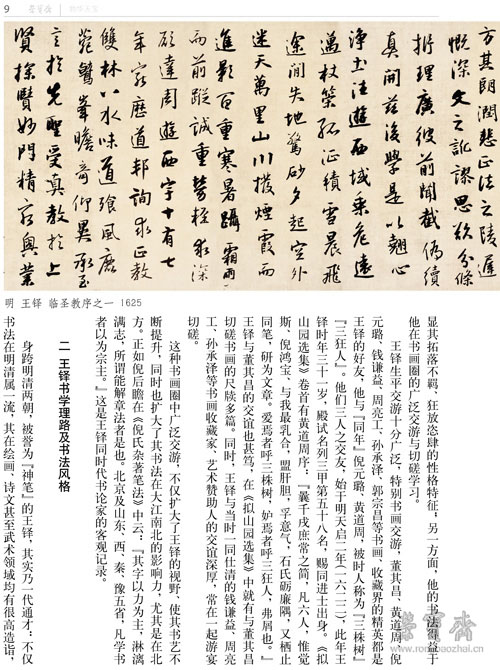 9
荣宝斋
方其朗潤悲正法之陵遲
慨深文之訛謬思欲分條
析理廣彼前聞截偽續
真開茲後學是以翹心
淨土往遊西域乘危遠
邁杖策孤征積雪晨飛
途閒失地驚砂夕起空外
迷天萬里山川撥煙霞而
進影百重寒暑躡霜雨
而前蹤誠重勞輕求深
願達周遊西宇十有七
年窮歷道邦詢求正教
雙林八水味道飡風鹿
菀鷲峯瞻奇仰異承至
言於先聖受真教於上
賢探賾妙門精窮奧業
明 王铎 临圣教序之一 1625
显其拓落不羁、狂放恣肆的性格特征；另一方面，他的书法得益
他在书画圈的广泛交游与切磋学习。
王铎生平交游十分广泛，特别书画交游，董其昌、黄道周、倪
元璐、钱谦益、周亮工、孙承泽、郭宗昌等书画、收藏界的精英都是
王铎的好友，他与『同年』倪元璐、黄道周，被时人称为『三株树』
『三狂人』。他们三人之交友，始于明天启二年（一六二二），此年王
铎时年三十一岁，殿试名列三甲第五十八名，赐同进士出身。《拟
山园选集》卷首有黄道周序：『曩壬戌庶常之简，凡六人，惟觉
斯、倪鸿宝、与我最乳合，盟肝胆，孚意气，石氏砺廉隅，又栖止
同笔，研为文章。爱焉者呼三株树，妒焉者呼三狂人，弗屑也。』
王铎与董其昌的交谊也甚笃，在《拟山园选集》中就有与董其昌
切磋书画的尺牍多篇。同时，王铎与当时一同仕清的钱谦益、周亮
工、孙承泽等书画收藏家、艺术赞助人的交谊深厚，常在一起游宴
切磋。
这种书画圈中广泛交游，不仅扩大了王铎的视野，使其书艺不
断提升，同时也扩大了其书法在大江南北的影响力，尤其是在北
方。正如倪后瞻在《倪氏杂著笔法》中云：『其字以力为主，淋漓
满志，所谓能解章法者是也。北京及山东、西、秦、豫五省，凡学书
者以为宗主。』这是王铎同时代书论家的客观记录。
二 王铎书学理路及书法风格
身跨明清两朝，被誉为『神笔』的王铎，其实乃一代通才：不仅
书法在明清属一流，其在绘画、诗文甚至武术领域均有很高造诣，
荣宝斋
www.rongbaozhai.cn